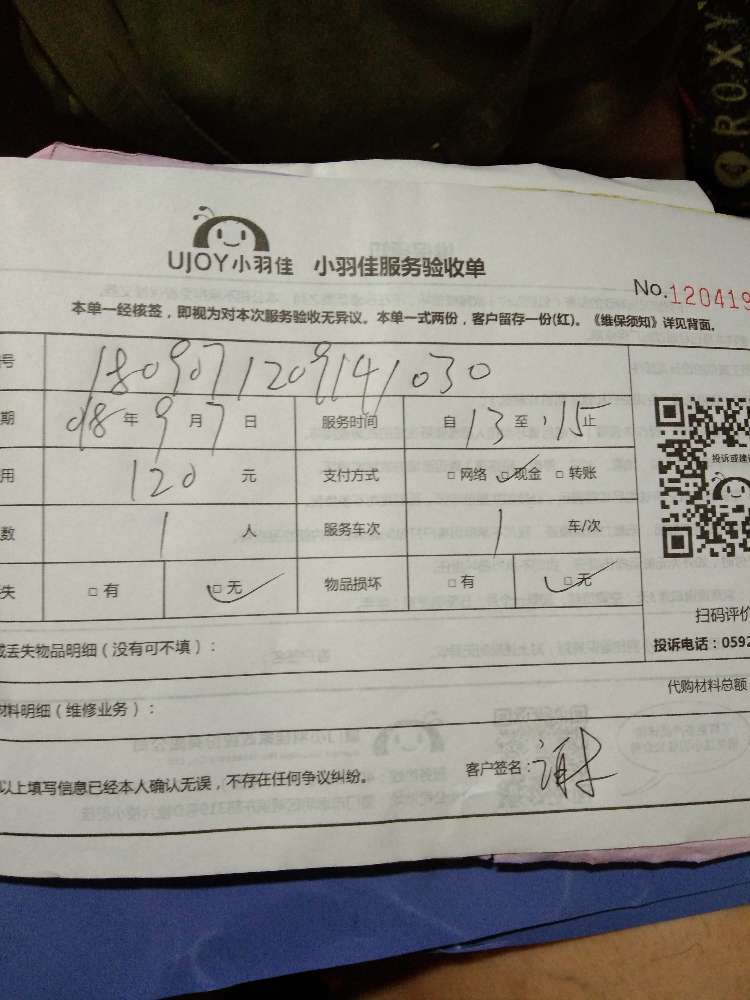 ROXY
UJOY小羽佳 小羽佳服务验收单
No.120419
本单一经核签，即视为对本次服务验收无异议。本单一式两份，客户留存一份(红)。《维保须知》详见背面。
号 1809071209141030
期 018年9月7日 服务时间 自13至15止
用 120元 支付方式 □网络 □现金 □转账
数 1人 服务车次 1车/次
失 □有 □无 物品损坏 □有 □无
投诉或建议
扫码评价
或丢失物品明细（没有可不填）：
投诉电话：0592
代购材料总额
材料明细（维修业务）：
以上填写信息已经本人确认无误，不存在任何争议纠纷。
客户签名：谢